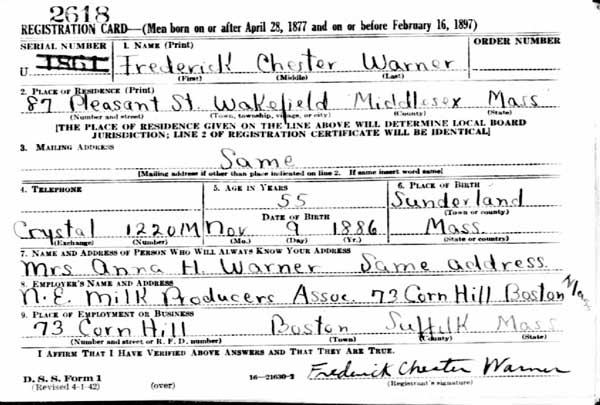 2618
REGISTRATION CARD—(Men born on or after April 28, 1877 and on or before February 16, 1897)
SERIAL NUMBER 1. NAME (Print) ORDER NUMBER
U 1861 Frederick Chester Warner
(First) (Middle) (Last)
2. PLACE OF RESIDENCE (Print)
87 Pleasant St. Wakefield Middlesex Mass
(Number and street) (Town, township, village, or city) (County) (State)
[THE PLACE OF RESIDENCE GIVEN ON THE LINE ABOVE WILL DETERMINE LOCAL BOARD
JURISDICTION; LINE 2 OF REGISTRATION CERTIFICATE WILL BE IDENTICAL]
3. MAILING ADDRESS
Same
[Mailing address if other than place indicated on line 2. If same insert word same]
4. TELEPHONE 5. AGE IN YEARS 6. PLACE OF BIRTH
55 Sunderland
DATE OF BIRTH (Town or county)
Crystal 1220M Nov 9 1886 Mass.
(Exchange) (Number) (Mo.) (Day) (Yr.) (State or country)
7. NAME AND ADDRESS OF PERSON WHO WILL ALWAYS KNOW YOUR ADDRESS
Mrs Anna H. Warner Same address
8. EMPLOYER'S NAME AND ADDRESS
N.E. Milk Producers Assoc. 73 Corn Hill Boston Mass
9. PLACE OF EMPLOYMENT OR BUSINESS
73 Corn Hill Boston Suffilk Mass
(Number and street or R. F. D. number) (Town) (County) (State)
I AFFIRM THAT I HAVE VERIFIED ABOVE ANSWERS AND THAT THEY ARE TRUE.
D. S. S. Form 1
(Revised 4-1-42) (over) 16—21630-2 Frederick Chester Warner
(Registrant's signature)